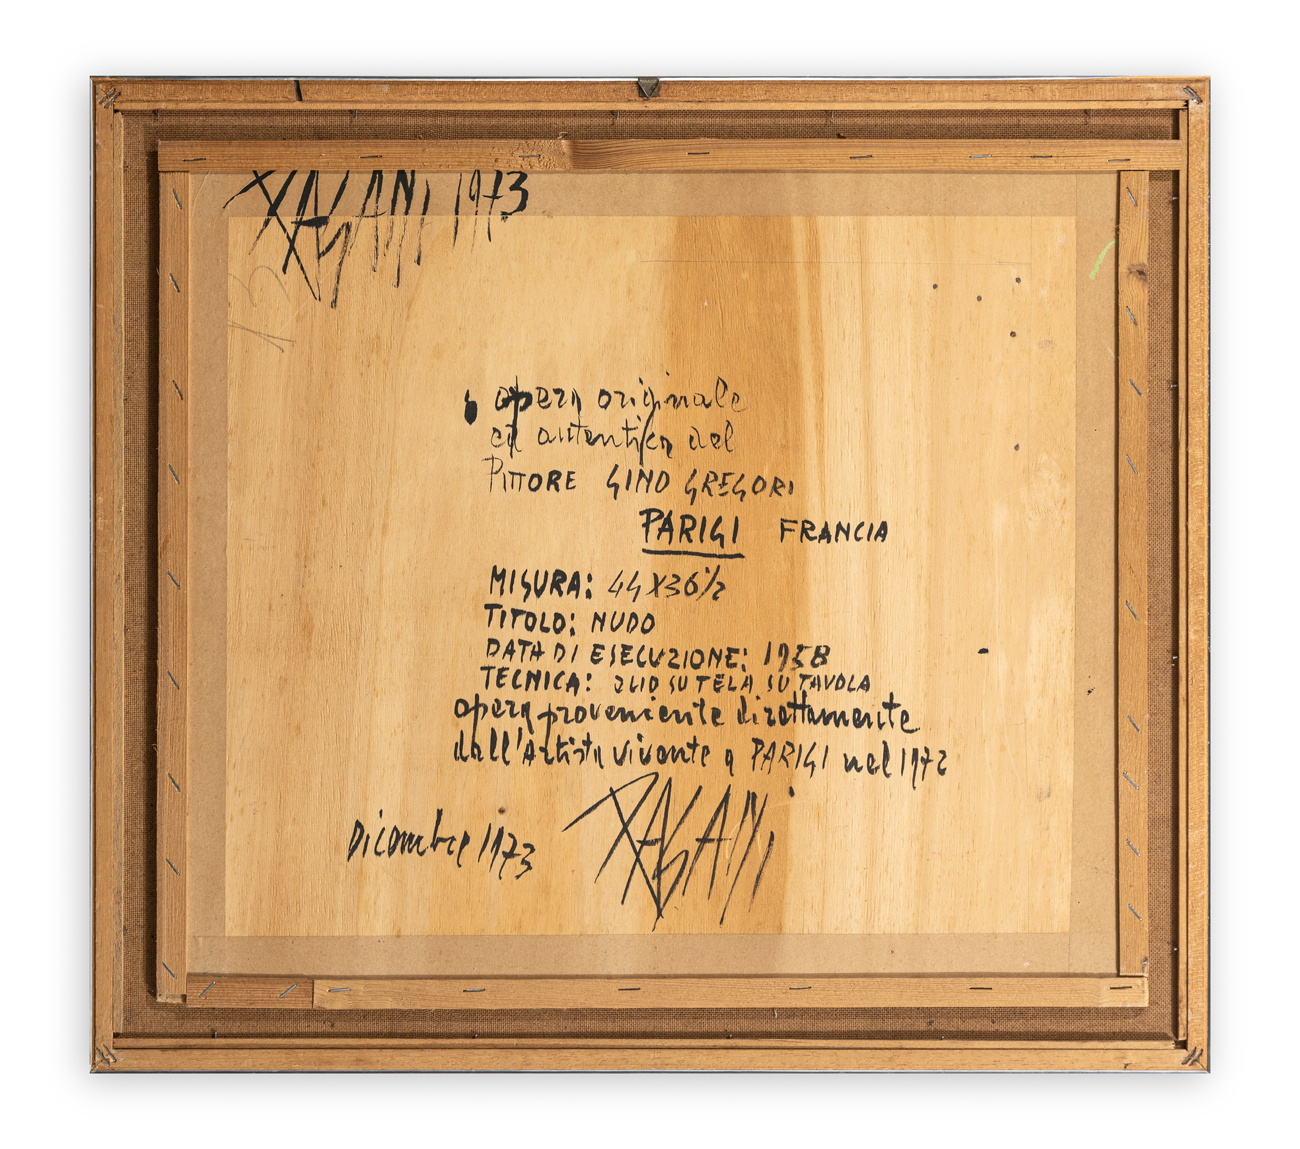 RAGANI 1973
opera originale
ed autentica del
PITTORE GINO GREGORI
PARIGI FRANCIA
MISURA: 44X36½
TITOLO: NUDO
DATA DI ESECUZIONE: 1958
TECNICA: OLIO SU TELA SU TAVOLA
opera proveniente direttamente
dall'Artista vivente a PARIGI nel 1972
Dicembre 1973 RAGANI